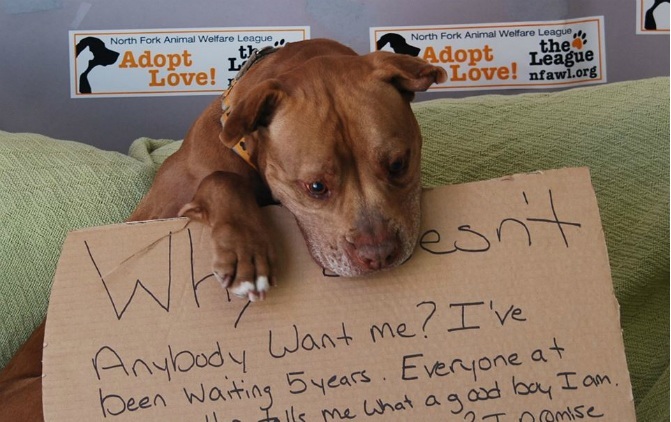 North Fork Animal Welfare League
Adopt
Love!
North Fork Animal Welfare League
Adopt
Love!
the
League
nfawl.org
Anybody Want me? I've
been waiting 5 years. Everyone at
tells me what a good boy I am.
? I promise